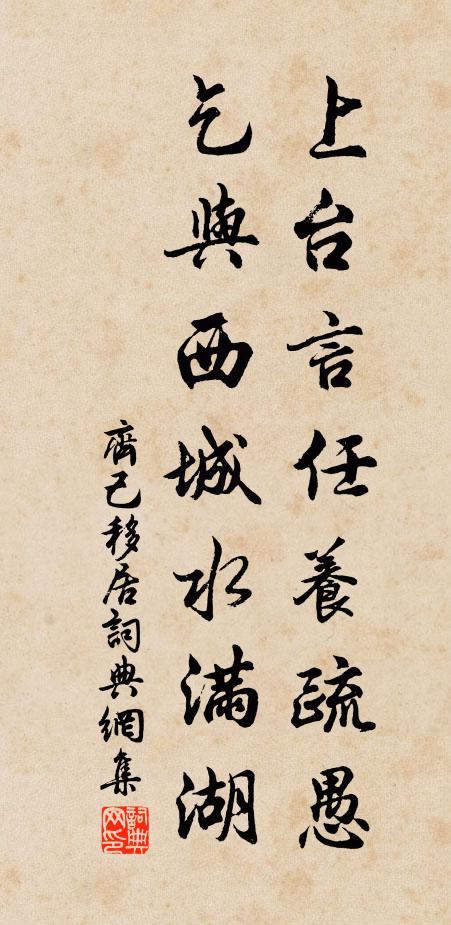 上台言任養疏愚
乞與西城水滿湖
齊己移居詞典網集
詞典網印